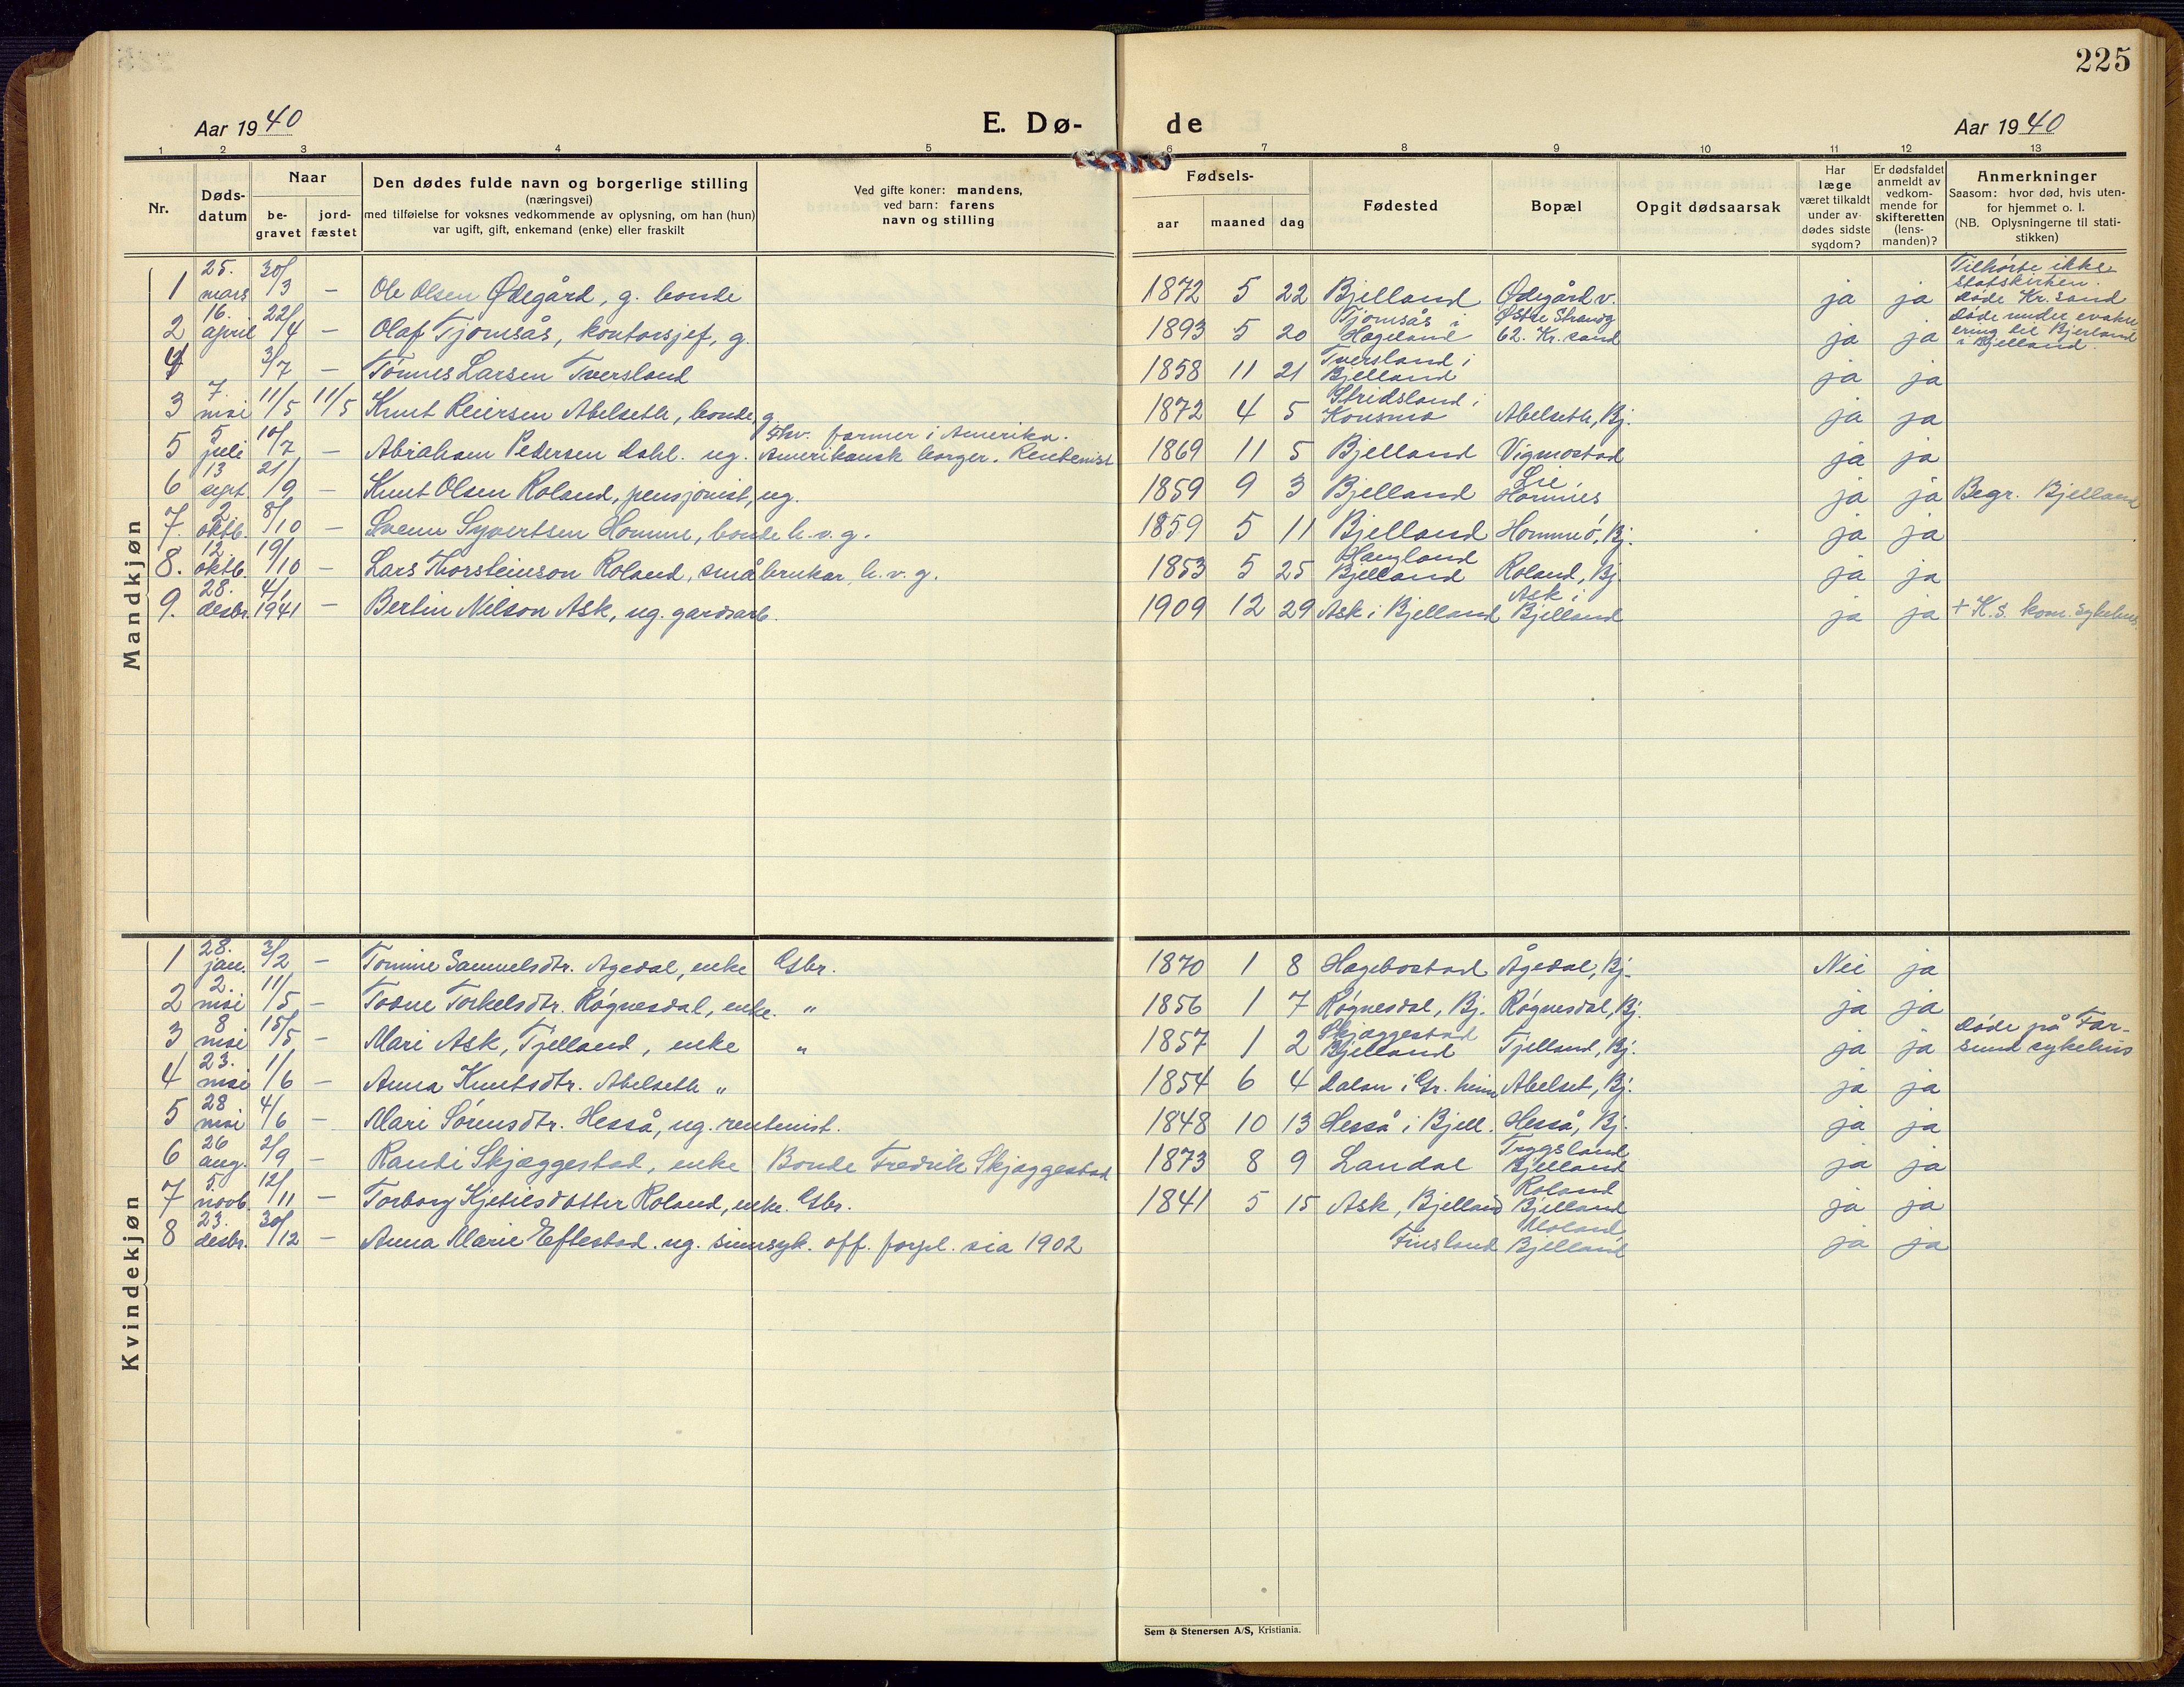 225
Aar 1940 E. Dø- de Aar 1940
1 2 3 4 5 6 7 8 9 10 11 12 13
Nr. Døds-datum Naar be-gravet jord-fæstet Den dødes fulde navn og borgerlige stilling (næringsvei) med tilføielse for voksnes vedkommende av oplysning, om han (hun) var ugift, gift, enkemand (enke) eller fraskilt Ved gifte koner: mandens, ved barn: farens navn og stilling Fødsels- aar maaned dag Fødested Bopæl Opgit dødsaarsak Har læge været tilkaldt under av-dødes sidste sygdom? Er dødsfaldet anmeldt av vedkom-mende for skifteretten (lens-manden)? Anmerkninger Saasom: hvor død, hvis uten-for hjemmet o. l. (NB. Oplysningerne til stati-stikken)
Mandkjøn
1 25. mars 30/3 – Ole Olsen Ødegård, g. bonde 1872 5 22 Bjelland Ødegård v. ja ja Tilhørte ikke statskirken. Døde Kr.sand
2 16. april 22/4 – Olaf Tjomsås, kontorsjef, g. 1893 5 20 Tjomsås i Hægeland Østre Strandg 62. Kr.sand ja ja Døde under evakuering til Bjelland i Bjelland.
4 3/7 – Tønnes Larsen Tversland 1858 11 21 Tversland i Bjelland ja ja
3 7. mai 11/5 11/5 Knut Reiersen Abelseth, bonde, g. 1872 4 5 Stridsland i Konsmo Abelseth, Bj. ja ja
5 5 juli 10/7 – Abraham Pedersen Dahl. ug. Fhv. farmer i Amerika. Amerikansk borger. Rentenist 1869 11 5 Bjelland Vigmostad ja ja
6 13 sept. 21/9 – Knut Olsen Roland, pensjonist, ug. 1859 9 3 Bjelland Lie Hornnes ja ja Begr. Bjelland
7. 2. oktb. 8/10 – Svenn Syvertsen Homme, bonde h.v.g. 1859 5 11 Bjelland Homme, Bj. ja ja
8. 12. oktb. 19/10 – Lars Thorsteinson Roland, småbrukar, h.v.g. 1853 5 25 Haugland Bjelland Roland, Bj. ja ja
9. 28. desbr. 4/1 1941 – Bertin Nilson Ask, ug. gardsarb. 1909 12 29 Ask i Bjelland Ask i Bjelland ja ja + K.S. kom. sykehus.
Kvindekjøn
1 28. jan. 3/2 – Tomine Samuelsdtr. Ågedal, enke Gbr. 1870 1 8 Hægebostad Ågedal, Bj. Nei ja
2 2. mai 11/5 – Todne Torkelsdtr. Røgnesdal, enke. " 1856 1 7 Røgnesdal, Bj. Røgnesdal, Bj. ja ja
3 8 mai 15/5 – Mari Ask, Tjelland, enke " 1857 1 2 Skjæggestad Bjelland Tjelland, Bj. ja ja Døde på Far-sund sykehus
4 23. mai 1/6 – Anna Knutsdtr. Abelseth " 1854 6 4 Dalen i Gr. heim Abelset, Bj. ja ja
5 28 mai 4/6 – Mari Sørensdtr. Hesså, ug. rentenist. 1848 10 13 Hesså i Bjell. Hesså, Bj. ja ja
6 26 aug. 2/9 – Randi Skjæggestad, enke Bonde Fredrik Skjæggestad 1873 8 9 Laudal Trygsland Bjelland ja ja
7 5. novb. 12/11 – Torborg Kjetilsdatter Roland, enke. Gbr. 1841 5 15 Ask, Bjelland Roland Bjelland ja ja
8 23. desbr. 30/12 – Anna Marie Eftestad. ug. sinnsyk. off. forpl. sia 1902 Finsland Moland Bjelland ja ja
Sem & Stenersen A/S, Kristiania.